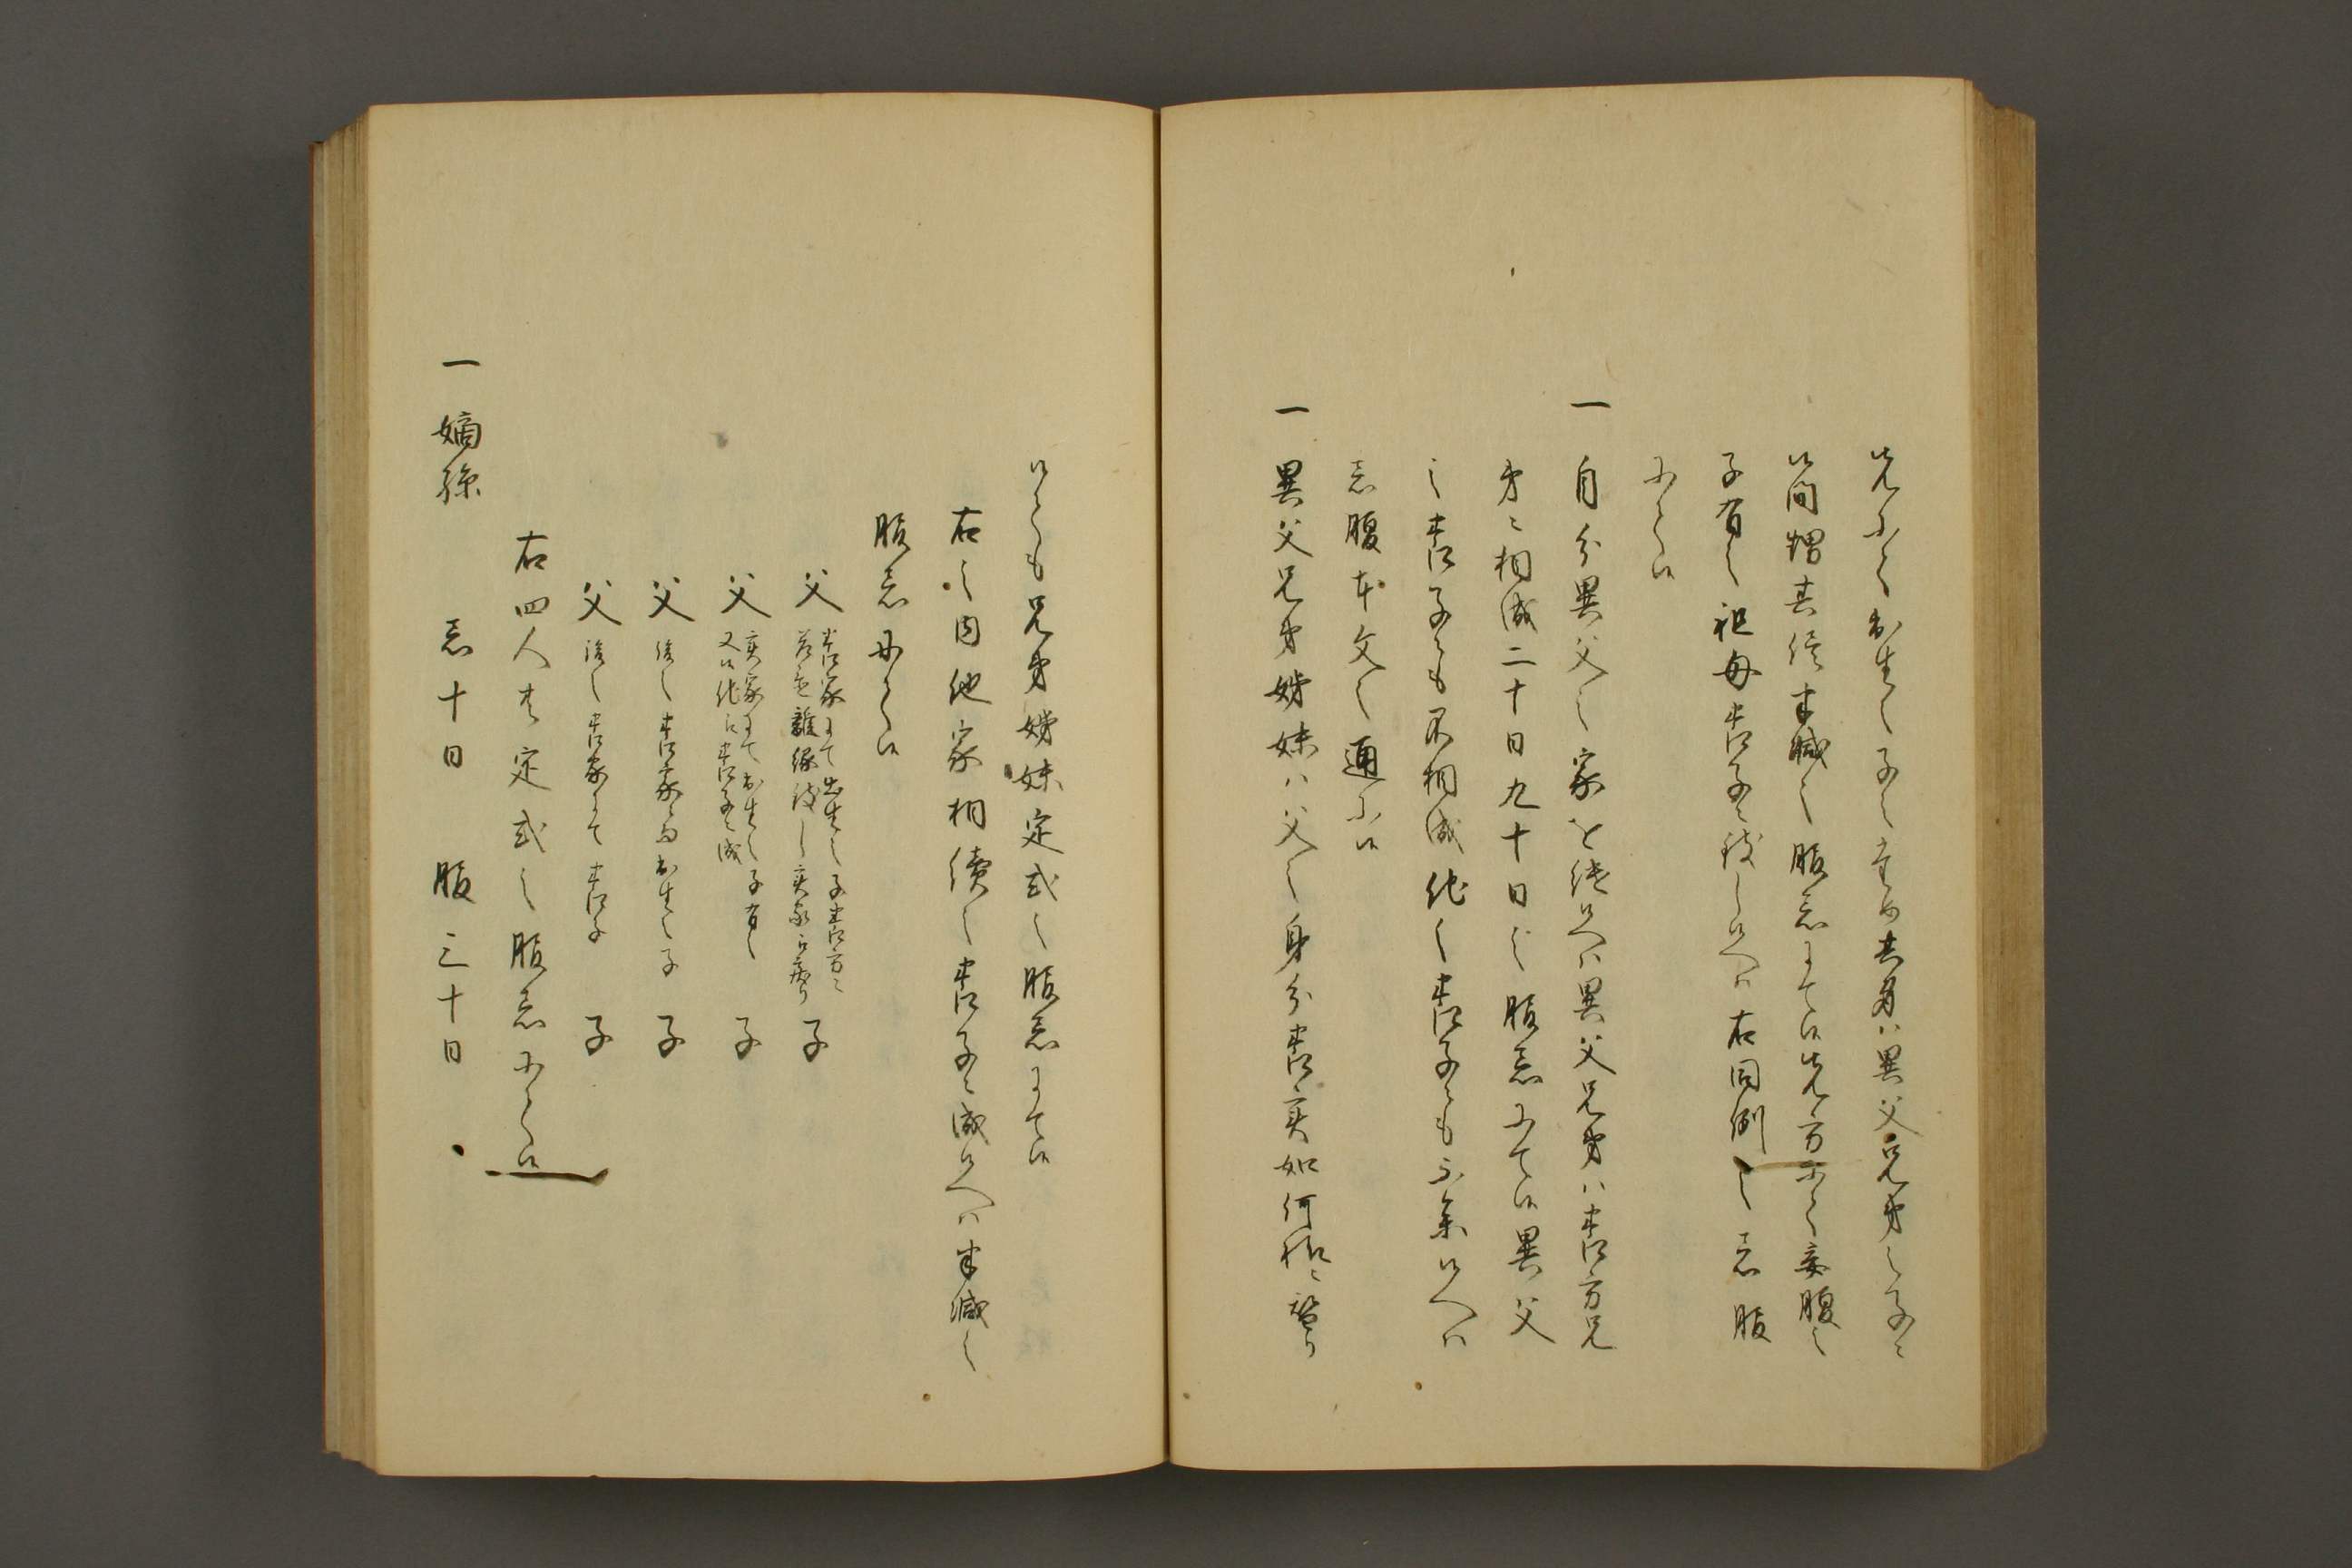 先ニて出生之子之ため其身ハ異父兄弟之子ニ
候間 其侭半減之服忌ニて候先方ニて妾腹之
子有之祖母養子ニ致し候へハ右同例之忌服
ニて候
一 自分異父之家を継候へハ異父兄弟ハ養方兄
弟ニ相成二十日九十日之服忌ニて候異父
之養子ニも不相成他之養子ニも不参候へハ
忌服本文之通ニ候
一 異父兄弟姉妹ハ父之身分養実如何様ニ替り
候ても兄弟姉妹定式之服忌ニて候
右之内他家相続之養子ニ成候へハ半減之
服忌ニて候
父 養家ニて出生之子養方ニ 離縁致し実家江帰り 子
父 実家ニて出生之子有之 又は他江養子ニ成 子
父 後之養家ニ而出生之子 子
父 後之養家ニて養子 子
右四人共定式之服忌ニて候
一 嫡孫 忌十日 服三十日